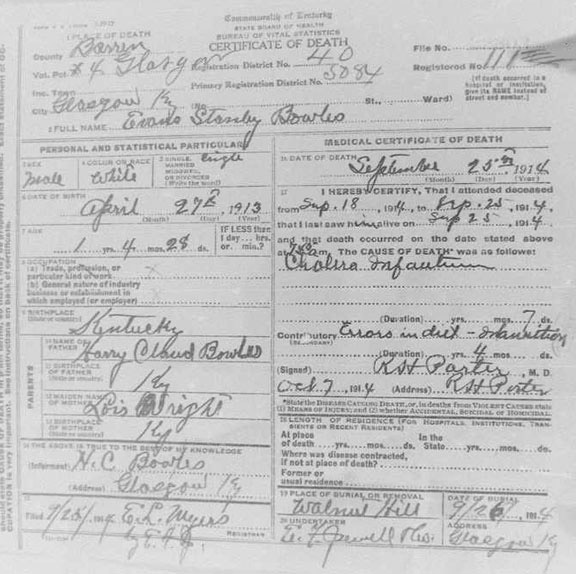 Commonwealth of Kentucky
STATE BOARD OF HEALTH
BUREAU OF VITAL STATISTICS
CERTIFICATE OF DEATH
1 PLACE OF DEATH
County Barren
Vot. Pct # 4 Glasgow
Registration District No. 40
File No.
Inc. Town
Primary Registration District No. 5084
Registered No. 111
City Glasgow Ky (No. St., Ward)
[If death occurred in a hospital or institution, give its NAME instead of street and number.]
2 FULL NAME Evans Stanley Bowles
PERSONAL AND STATISTICAL PARTICULARS
3 SEX
Male
4 COLOR OR RACE
White
5 SINGLE, MARRIED, WIDOWED, OR DIVORCED (Write the word)
Single
6 DATE OF BIRTH
April 27th, 1913
(Month) (Day) (Year)
7 AGE
1 yrs. 4 mos. 28 ds.
IF LESS than 1 day... hrs. or min.?
8 OCCUPATION
(a) Trade, profession, or particular kind of work
(b) General nature of industry business or establishment in which employed (or employer)
9 BIRTHPLACE
(State or country)
Kentucky
PARENTS
10 NAME OF FATHER
Harry Claud Bowles
11 BIRTHPLACE OF FATHER
(State or country)
Ky
12 MAIDEN NAME OF MOTHER
Lois Wright
13 BIRTHPLACE OF MOTHER
(State or country)
Ky
14 THE ABOVE IS TRUE TO THE BEST OF MY KNOWLEDGE
(Informant) H. C. Bowles
(Address) Glasgow Ky
15
Filed 9/25, 191 E. L. Myers
REGISTRAR
MEDICAL CERTIFICATE OF DEATH
16 DATE OF DEATH
September 25th, 1914
(Month) (Day) (Year)
17 I HEREBY CERTIFY, That I attended deceased
from Sep. 18, 1914, to Sep. 25, 1914,
that I last saw him alive on Sep 25, 1914,
and that death occurred on the date stated above
at m. The CAUSE OF DEATH* was as follows:
Cholera Infantum
(Duration) yrs. mos. 7 ds.
Contributory Errors in diet - Inanition
(SECONDARY)
(Duration) yrs. 4 mos. ds.
(Signed) R H Porter, M. D.
Oct. 7, 1914 (Address) R H Porter
*State the DISEASE CAUSING DEATH, or, in deaths from VIOLENT CAUSES state (1) MEANS OF INJURY; and (2) whether ACCIDENTAL, SUICIDAL or HOMICIDAL.
18 LENGTH OF RESIDENCE (FOR HOSPITALS, INSTITUTIONS, TRANSIENTS OR RECENT RESIDENTS)
At place of death yrs. mos. ds. In the State yrs. mos. ds.
Where was disease contracted, if not at place of death?
Former or usual residence
19 PLACE OF BURIAL OR REMOVAL
Walnut Hill
DATE OF BURIAL
9/26, 1914
20 UNDERTAKER
ADDRESS
Glasgow Ky